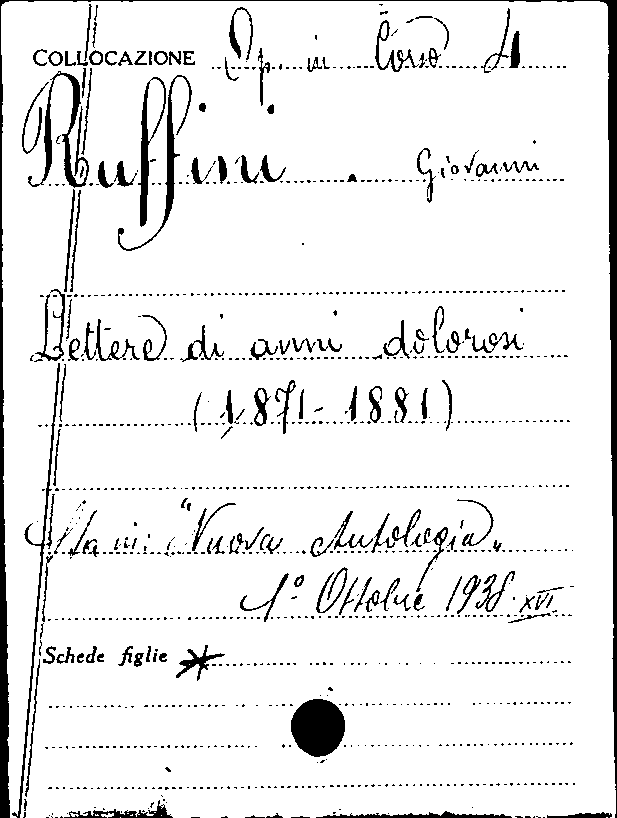 COLLOCAZIONE Op. in Corso 41
Ruffini . Giovanni
Lettere di anni dolorosi
(1871-1881)
Sta in: "Nuova Antologia„
1º Ottobre 1938. XVI
Schede figlie *